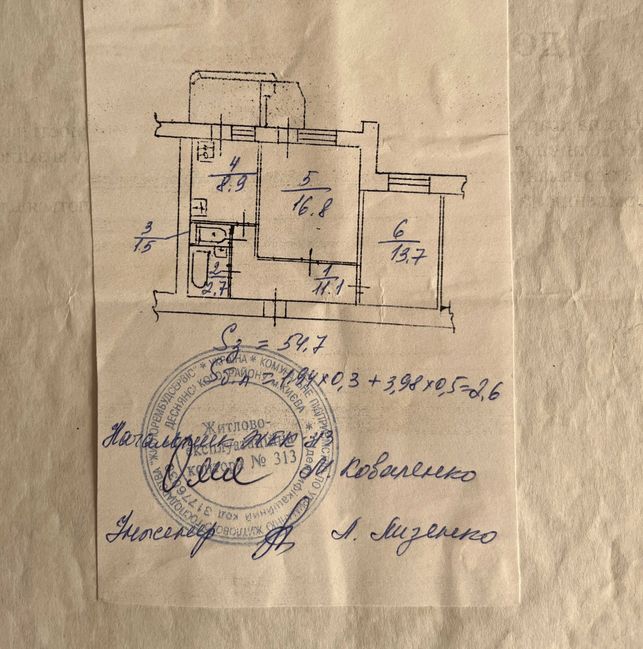 4
8.9
5
16.8
6
13.7
3
1.5
2
2.7
1
11.1
Sз = 54,7
Sб.л = 1,94×0,3 + 3,98×0,5=2,6
Начальник ЖЕК 313
М. Коваленко
Інженер Л. Лизенко
УКРАЇНА * КОМУНАЛЬНЕ ПІДПРИЄМСТВО ПО УТРИМАННЮ ЖИТЛОВОГО ГОСПОДАРСТВА "ЖИТЛОРЕМБУДСЕРВІС"
ДЕСНЯНСЬКОГО РАЙОНУ м. КИЄВА * Ідентифікаційний код
Житлово-
експлуатаційна
контора № 313